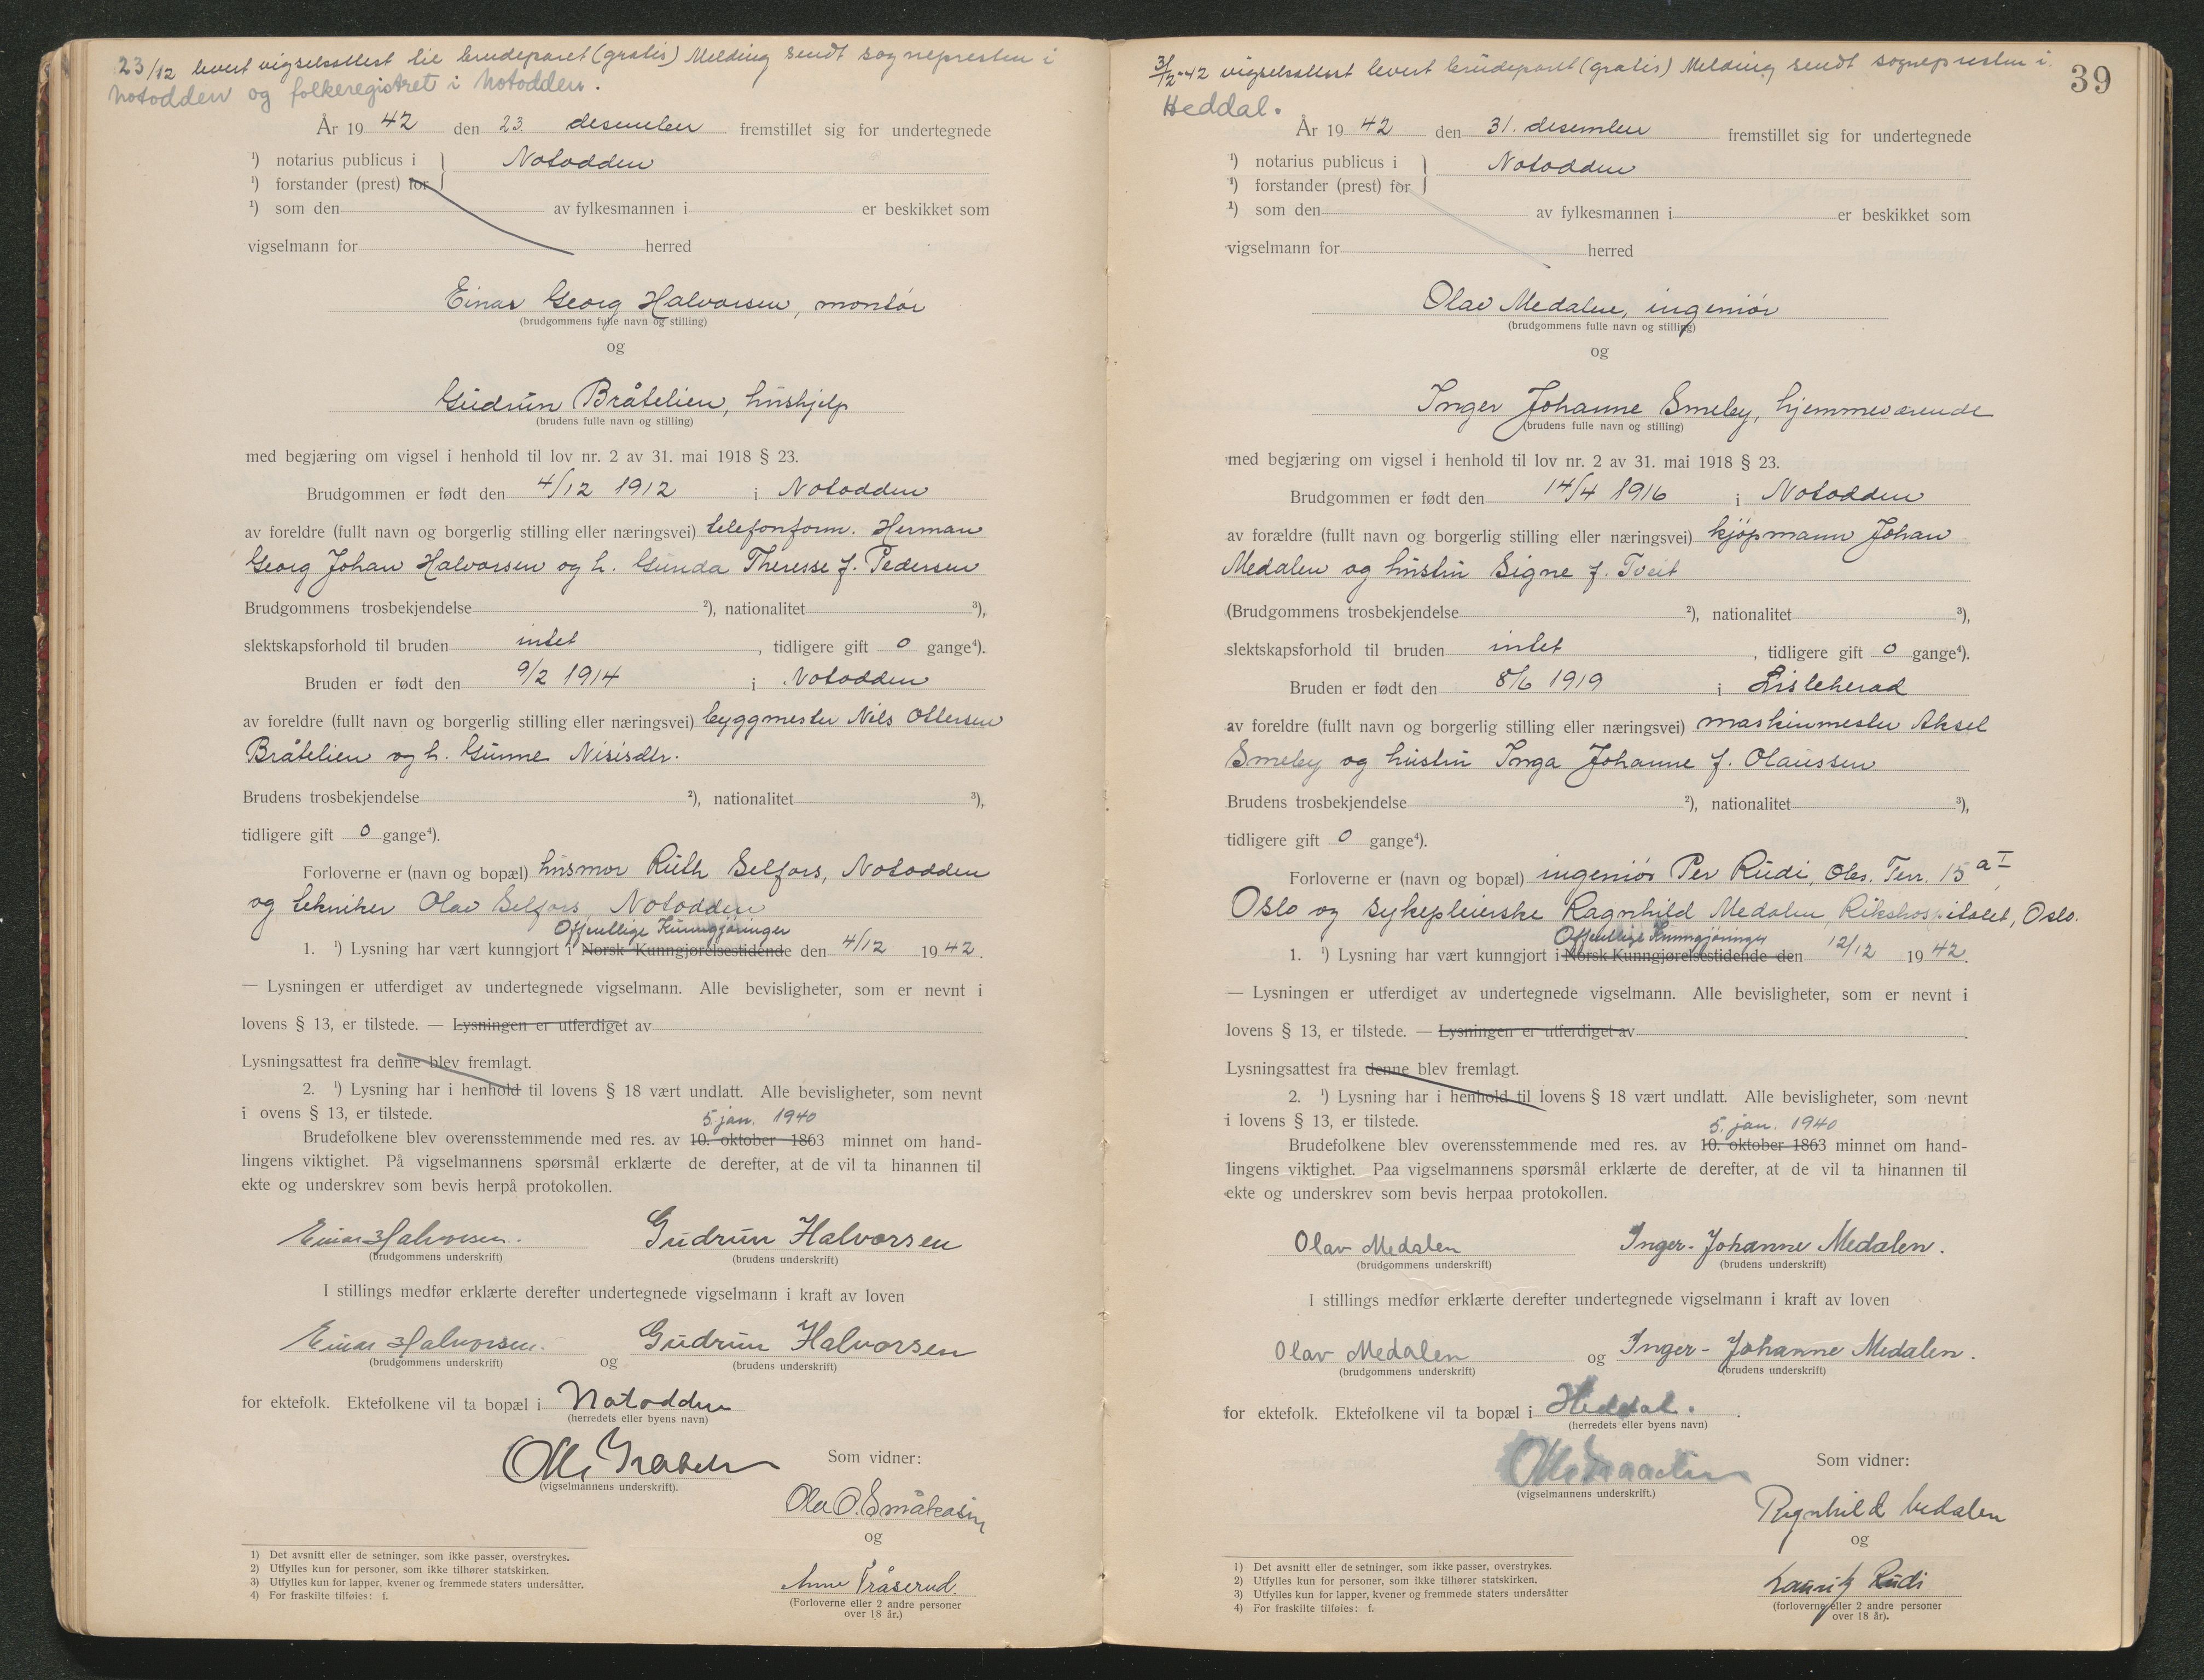 23/12 levert vigselsattest til brudeparet (gratis) Melding sendt sognepresten i
Notodden og folkeregistret i Notodden.
År 19 42 den 23. desember fremstillet sig for undertegnede
¹) notarius publicus i } Notodden
¹) forstander (prest) for
¹) som den av fylkesmannen i er beskikket som
vigselmann for herred
Einar Georg Halvorsen, montör
(brudgommens fulle navn og stilling)
og
Gudrun Bråtelien, hushjelp
(brudens fulle navn og stilling)
med begjæring om vigsel i henhold til lov nr. 2 av 31. mai 1918 § 23.
Brudgommen er født den 4/12 1912 i Notodden
av foreldre (fullt navn og borgerlig stilling eller næringsvei) telefonform. Herman
Georg Johan Halvorsen og h. Gunda Theresse f. Pedersen
Brudgommens trosbekjendelse ²), nationalitet ³),
slektskapsforhold til bruden intet, tidligere gift 0 gange⁴).
Bruden er født den 9/2 1914 i Notodden
av foreldre (fullt navn og borgerlig stilling eller næringsvei) byggmester Nils Ottersen
Bråtelien og h. Gunne Nisisdtr.
Brudens trosbekjendelse ²), nationalitet ³),
tidligere gift 0 gange⁴).
Forloverne er (navn og bopæl) husmor Ruth Selfors, Notodden
og tekniker Olav Selfors, Notodden
Offentlige Kunngjøringer
1. ¹) Lysning har vært kunngjort i Norsk Kunngjørelsestidende den 4/12 1942.
— Lysningen er utferdiget av undertegnede vigselmann. Alle bevisligheter, som er nevnt i
lovens § 13, er tilstede. — Lysningen er utferdiget av
Lysningsattest fra denne blev fremlagt.
2. ¹) Lysning har i henhold til lovens § 18 vært undlatt. Alle bevisligheter, som nevnt
i ovens § 13, er tilstede.
5. jan. 1940
Brudefolkene blev overensstemmende med res. av 10. oktober 1863 minnet om hand-
lingens viktighet. På vigselmannens spørsmål erklærte de derefter, at de vil ta hinannen til
ekte og underskrev som bevis herpå protokollen.
Einar Halvorsen. Gudrun Halvorsen
(brudgommens underskrift) (brudens underskrift)
I stillings medfør erklærte derefter undertegnede vigselmann i kraft av loven
Einar Halvorsen. og Gudrun Halvorsen
(brudgommens underskrift) (brudens underskrift)
for ektefolk. Ektefolkene vil ta bopæl i Notodden
(herredets eller byens navn)
Som vidner:
(vigselmannens underskrift).
Ola O.
og
Anne Tråserud.
(Forloverne eller 2 andre personer
over 18 år.)
1) Det avsnitt eller de setninger, som ikke passer, overstrykes.
2) Utfylles kun for personer, som ikke tilhører statskirken.
3) Utfylles kun for lapper, kvener og fremmede staters undersåtter.
4) For fraskilte tilføies: f.
39
31/12-42 vigselsattest levert brudeparet (gratis) Melding sendt sognepresten i
Heddal.
År 19 42 den 31. desember fremstillet sig for undertegnede
¹) notarius publicus i } Notodden
¹) forstander (prest) for
¹) som den av fylkesmannen i er beskikket som
vigselmann for herred
Olav Medalen, ingeniör
(brudgommens fulle navn og stilling)
og
Inger Johanne Smeby, hjemmeværende
(brudens fulle navn og stilling)
med begjæring om vigsel i henhold til lov nr. 2 av 31. mai 1918 § 23.
Brudgommen er født den 14/4 1916 i Notodden
av forældre (fullt navn og borgerlig stilling eller næringsvei) kjöpmann Johan
Medalen og hustru Signe f. Tveit
(Brudgommens trosbekjendelse ²), nationalitet ³),
slektskapsforhold til bruden intet, tidligere gift 0 gange⁴).
Bruden er født den 8/6 1919 i Lisleherad
av foreldre (fullt navn og borgerlig stilling eller næringsvei) maskinmester Aksel
Smeby og hustru Inga Johanne f. Olaussen
Brudens trosbekjendelse ²), nationalitet ³),
tidligere gift 0 gange⁴).
Forloverne er (navn og bopæl) ingeniör Per Rudi, Obs. Terr. 15 a I
Oslo og sykepleierske Ragnhild Medalen, Rikshospitalet, Oslo.
Offentlige Kunngjøringer
1. ¹) Lysning har vært kunngjort i Norsk Kunngjørelsestidende den 12/12 1942.
— Lysningen er utferdiget av undertegnede vigselmann. Alle bevisligheter, som er nevnt i
lovens § 13, er tilstede. — Lysningen er utferdiget av
Lysningsattest fra denne blev fremlagt.
2. ¹) Lysning har i henhold til lovens § 18 vært undlatt. Alle bevisligheter, som nevnt
i lovens § 13, er tilstede.
5. jan. 1940
Brudefolkene blev overensstemmende med res. av 10. oktober 1863 minnet om hand-
lingens viktighet. Paa vigselmannens spørsmål erklærte de derefter, at de vil ta hinannen til
ekte og underskrev som bevis herpaa protokollen.
Olav Medalen Inger-Johanne Medalen.
(brudgommens underskrift) (brudens underskrift)
I stillings medfør erklærte derefter undertegnede vigselmann i kraft av loven
Olav Medalen og Inger-Johanne Medalen.
(brudgommens underskrift) (brudens underskrift)
for ektefolk. Ektefolkene vil ta bopæl i Heddal.
(herredets eller byens navn)
Som vidner:
(vigselmannens underskrift.)
Ragnhild Medalen
og
Lauritz Rudi
(forloverne eller 2 andre personer
over 18 år).
1) Det avsnitt eller de setninger, som ikke passer, overstrykes.
2) Utfylles kun for personer, som ikke tilhører statskirken.
3) Utfylles kun for lapper, kvener og fremmede staters undersåtter
4) For fraskilte tilføies: f.